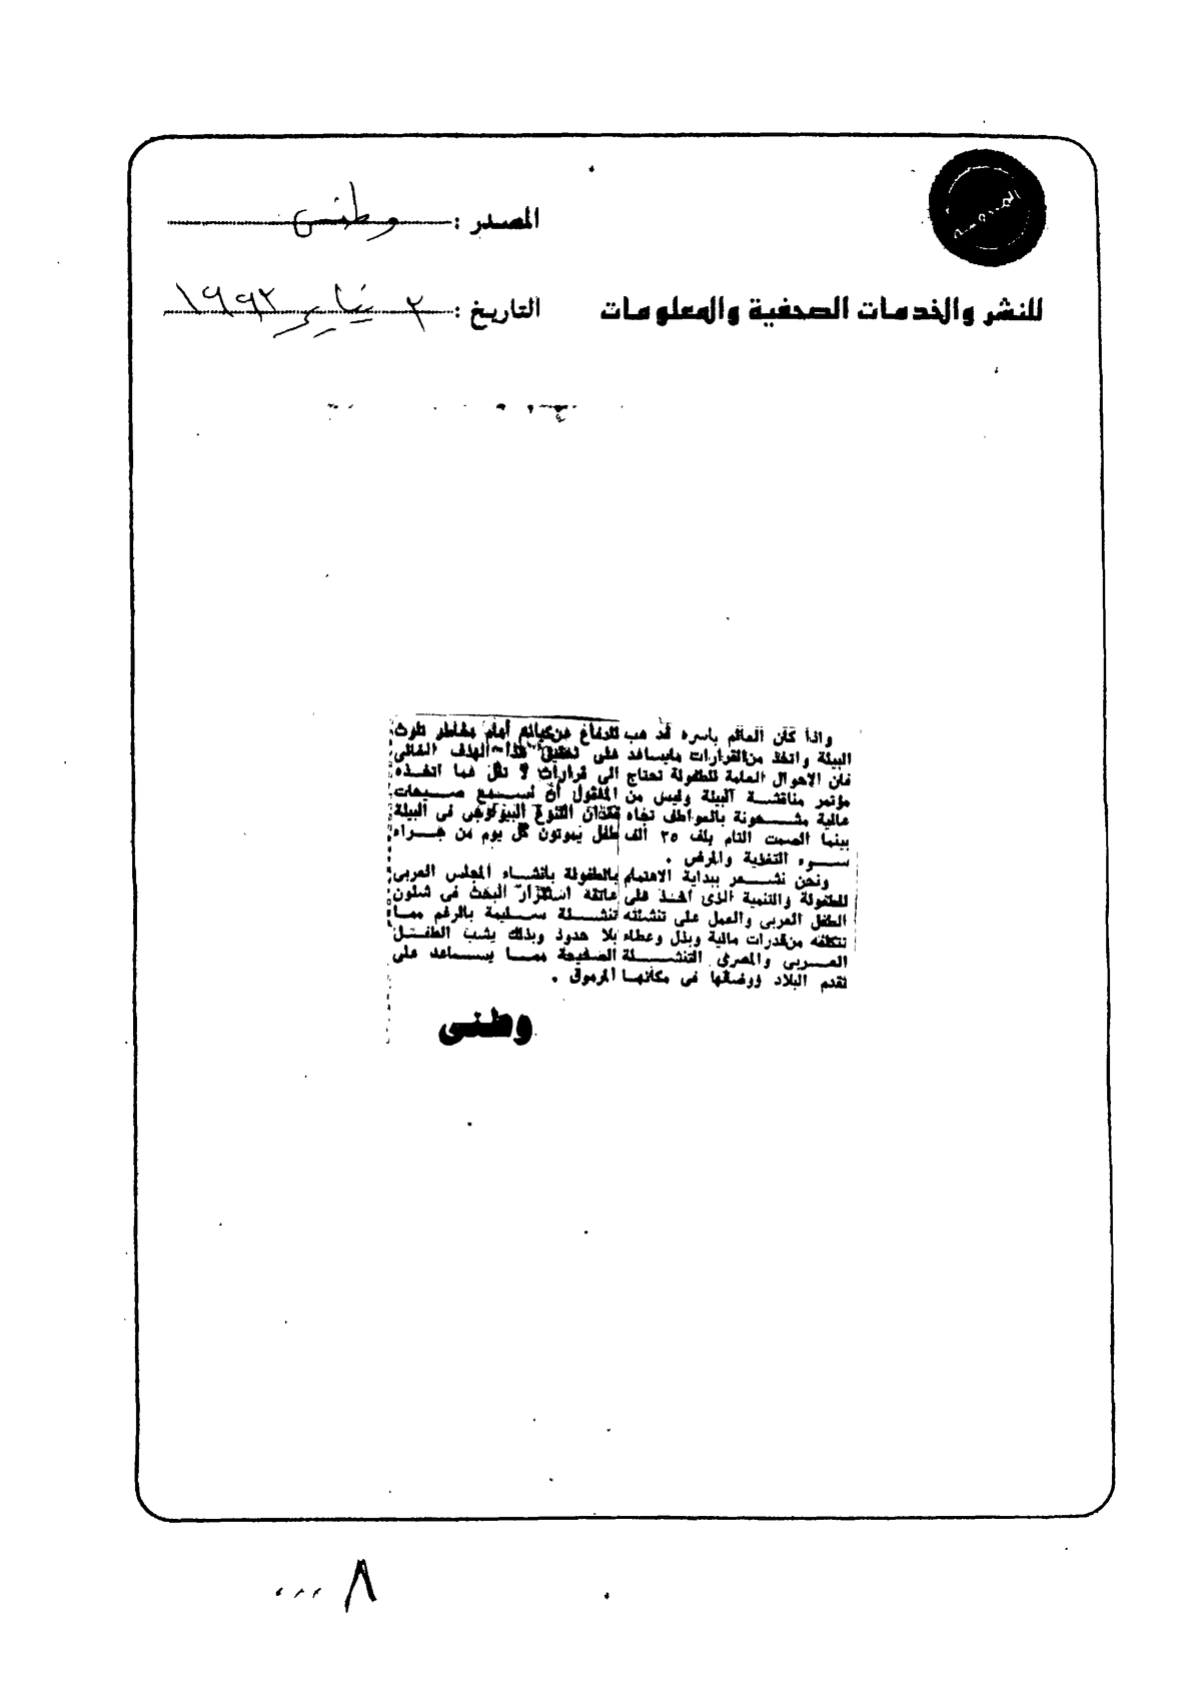 المصدر : وطنى
للنشر والخدمات الصحفية والمعلومات
التاريخ : ٢ يناير ١٩٩٢
واذا كان العالم باسره قد هب للدفاع عن كيانه أمام مخاطر تلوث
البيئة واتخذ من القرارات مايساعد على تحقيق هذا الهدف الغالى
فان الاحوال العامة للطفولة تحتاج الى قرارات ؟ تقل عما اتخذه
مؤتمر مناقشة البيئة وليس من المقول أن نسمع صيحات
عالية مشحونة بالعواطف تجاه فقدان التنوع البيولوجى فى البيئة
بينما الصمت التام يلف ٣٥ ألف طفل يموتون كل يوم من جراء
سوء التغذية والمرض .
ونحن نشعر ببداية الاهتمام بالطفولة بانشاء المجلس العربى
للطفولة والتنمية الذى أخذ على عاتقه استمرار البحث فى شئون
الطفل العربى والعمل على تنشئته تنشئة سليمة بالرغم مما
تتكلفه من قدرات مالية وبذل وعطاء بلا حدود وبذلك يشب الطفل
العربى والمصرى التنشئة الصحيحة مما يساعد على
تقدم البلاد ووضعها فى مكانها المرموق .
وطنى
٨ ...